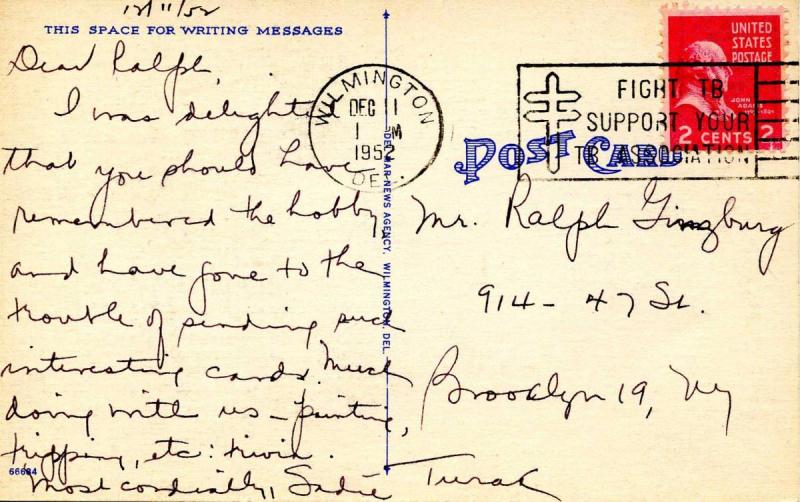 12/11/52
THIS SPACE FOR WRITING MESSAGES
Dear Ralph,
I was delighted
that you should have
remembered the hobby,
and have gone to the
trouble of sending such
interesting cards. Much
doing with us - painting,
tripping, etc: trivia.
Most cordially, Sadie Turak
66684
DELMAR NEWS AGENCY, WILMINGTON, DEL.
WILMINGTON
DEC 11
1 M
1952
DEL.
FIGHT TB
SUPPORT YOUR
TB ASSOCIATION
UNITED
STATES
POSTAGE
JOHN
ADAMS
2 CENTS 2
POST CARD
Mr. Ralph Ginzburg
914 - 47 St.
Brooklyn 19, NY